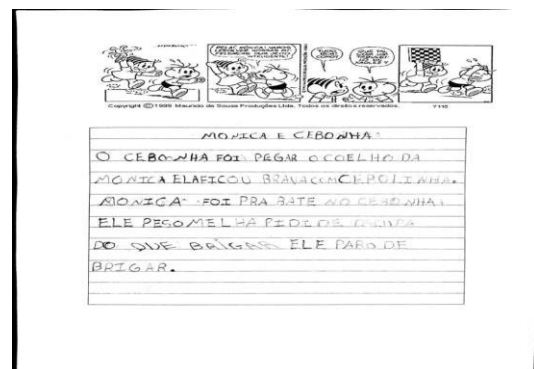 Copyright © 1999 Mauricio de Sousa Produções Ltda. Todos os direitos reservados.
MONICA E CEBONHA
O CEBONHA FOI PEGAR O COELHO DA
MONICA ELAFICOU BRAVA COM CEPOLINHA.
MONICA FOI PRA BATE NO CEBONHA
ELE PESO MELHA PIDI DE
DO QUE BRIGAR ELE PARO DE
BRIGAR.